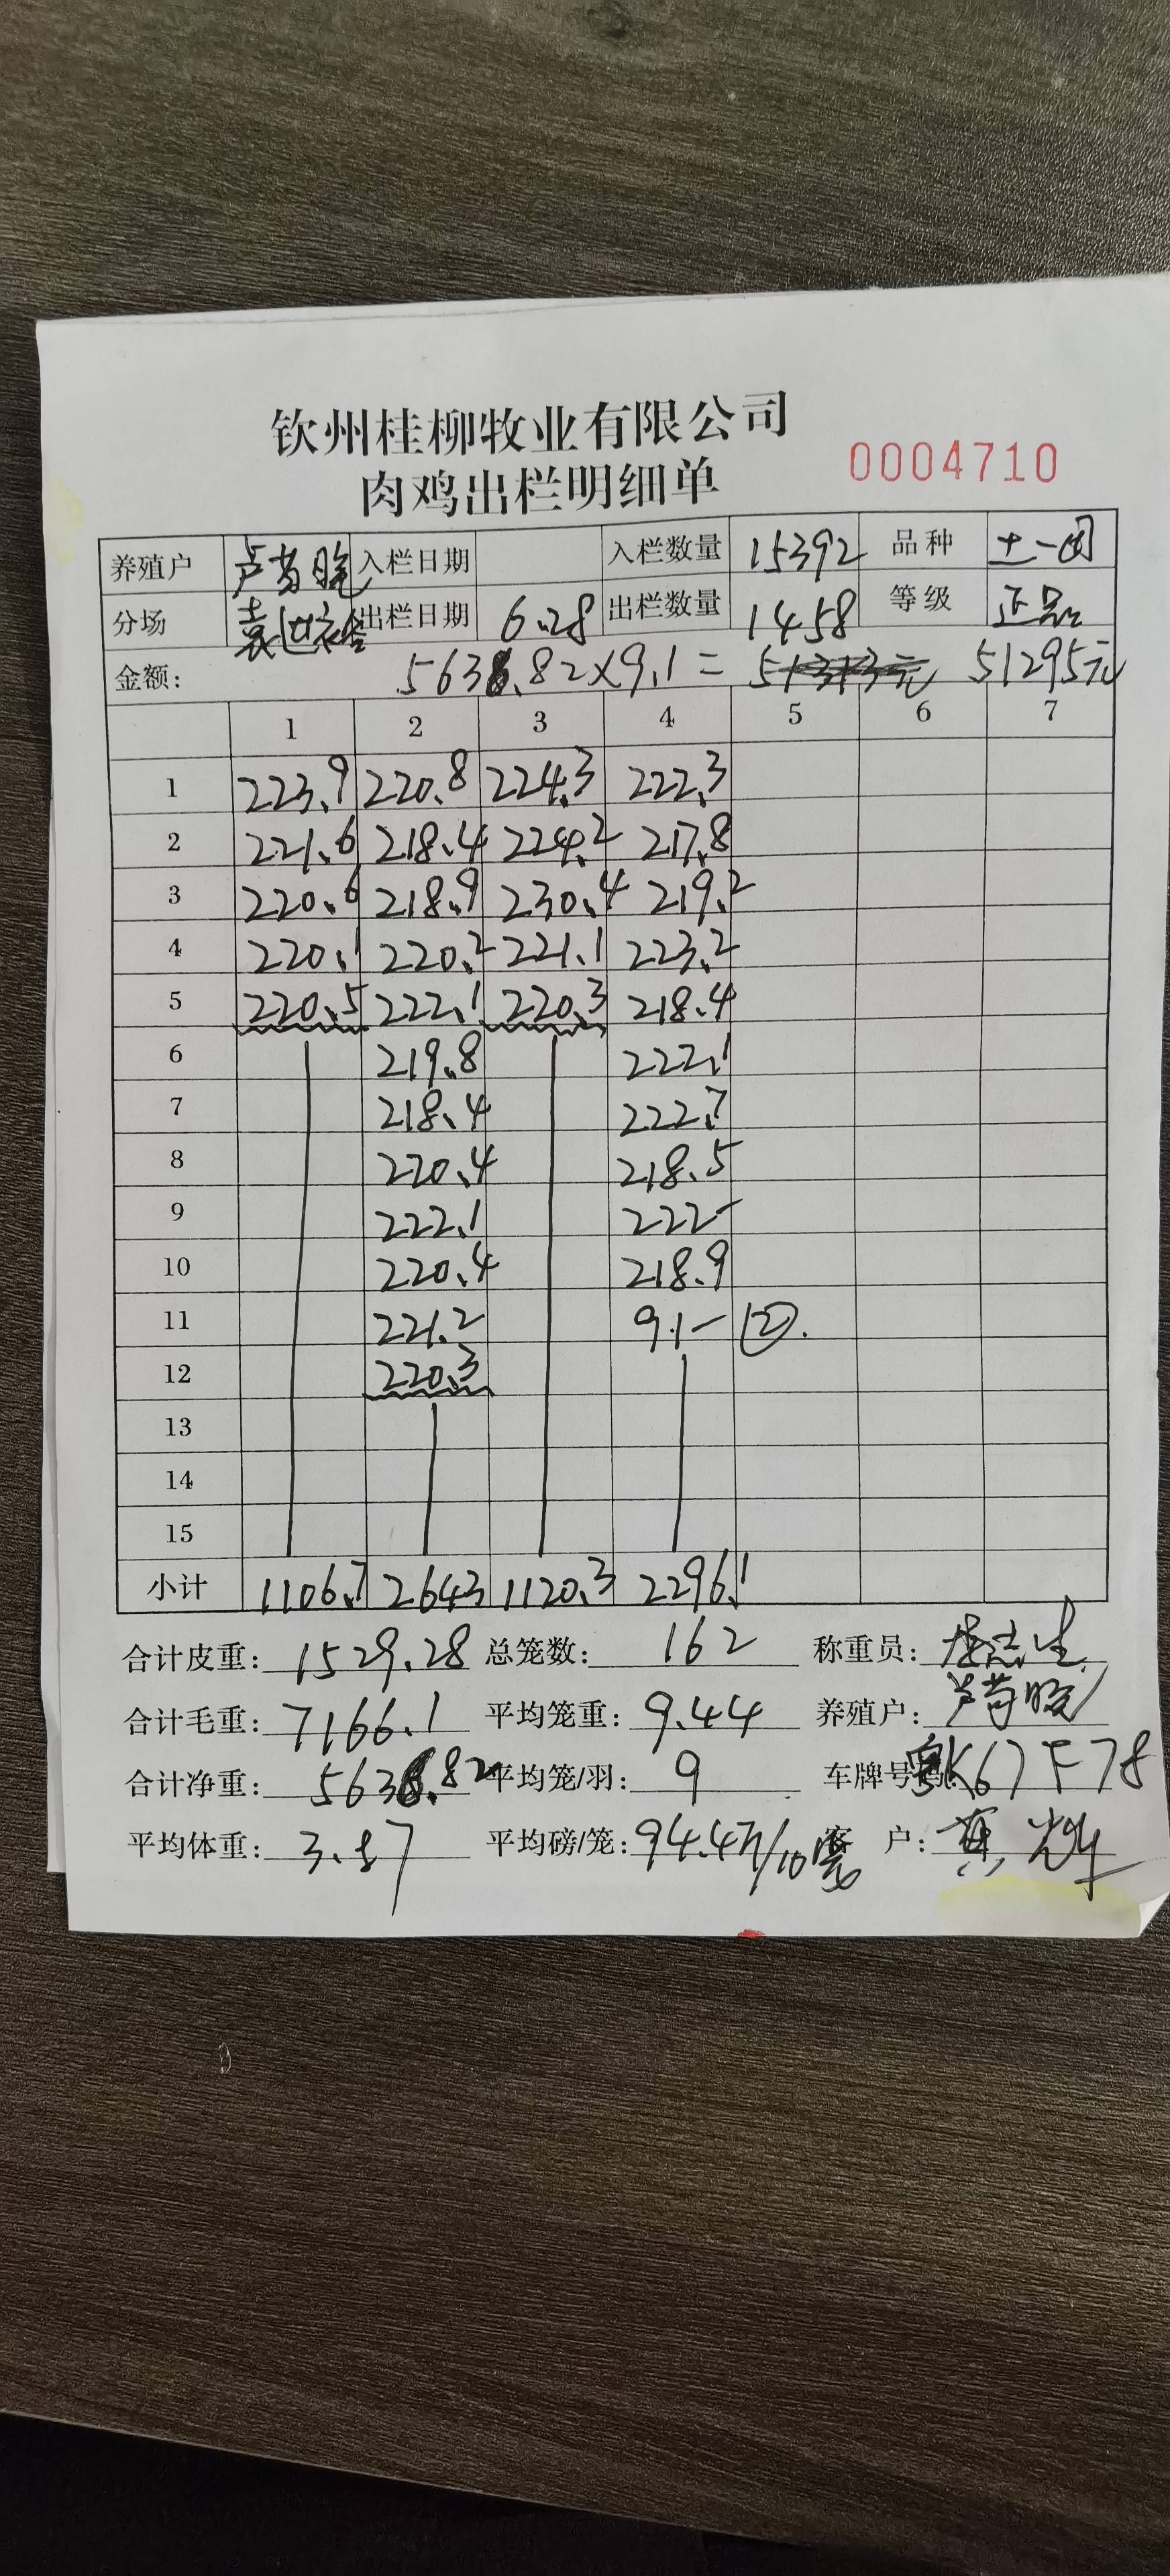 钦州桂柳牧业有限公司
肉鸡出栏明细单 0004710
养殖户 入栏日期 入栏数量 15392 品种 土一
分场 出栏日期 6.28 出栏数量 1458 等级 正品
金额: 5636.82×9.1= 51313元 51295元
1 2 3 4 5 6 7
1 223.9 220.8 224.3 222.3
2 221.6 218.4 224.2 217.8
3 220.6 218.9 230.4 219.2
4 220.1 220.2 221.1 223.2
5 220.5 222.1 220.3 218.4
6 219.8 222.1
7 218.4 222.7
8 220.4 218.5
9 222.1 222-
10 220.4 218.9
11 221.2 91-
12 220.3
13
14
15
小计 1106.7 2643 1120.3 2296.1
合计皮重: 1529.28 总笼数: 162 称重员:
合计毛重: 7166.1 平均笼重: 9.44 养殖户:
合计净重: 5636.82 平均笼/羽: 9 车牌号码: K67F78
平均体重: 3.87 平均磅/笼: 94.4斤/10笼 客 户: